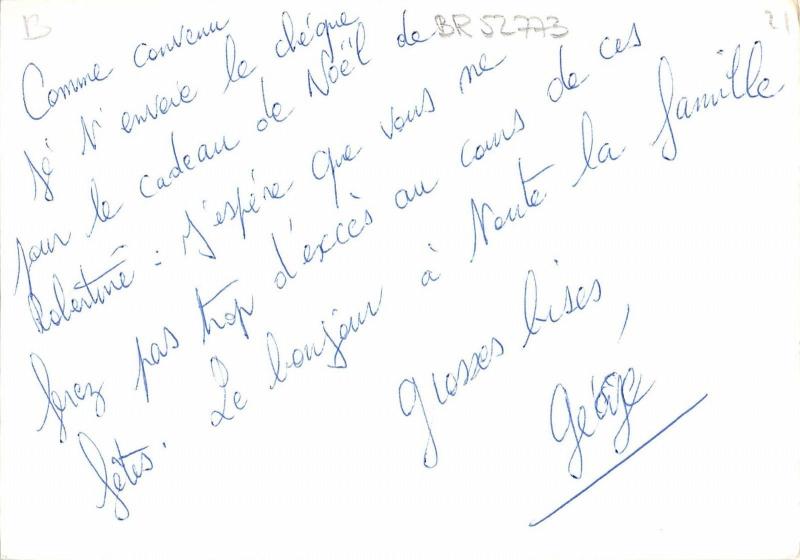 B
BR 52773
21
Comme convenu
Jé t'envoie le chéque de
pour le cadeau de Noël
Robertine : J'espére que vous ne
ferez pas trop d'excès au cours de ces
fêtes. Le bonjour à toute la famille
grosses bises,
George